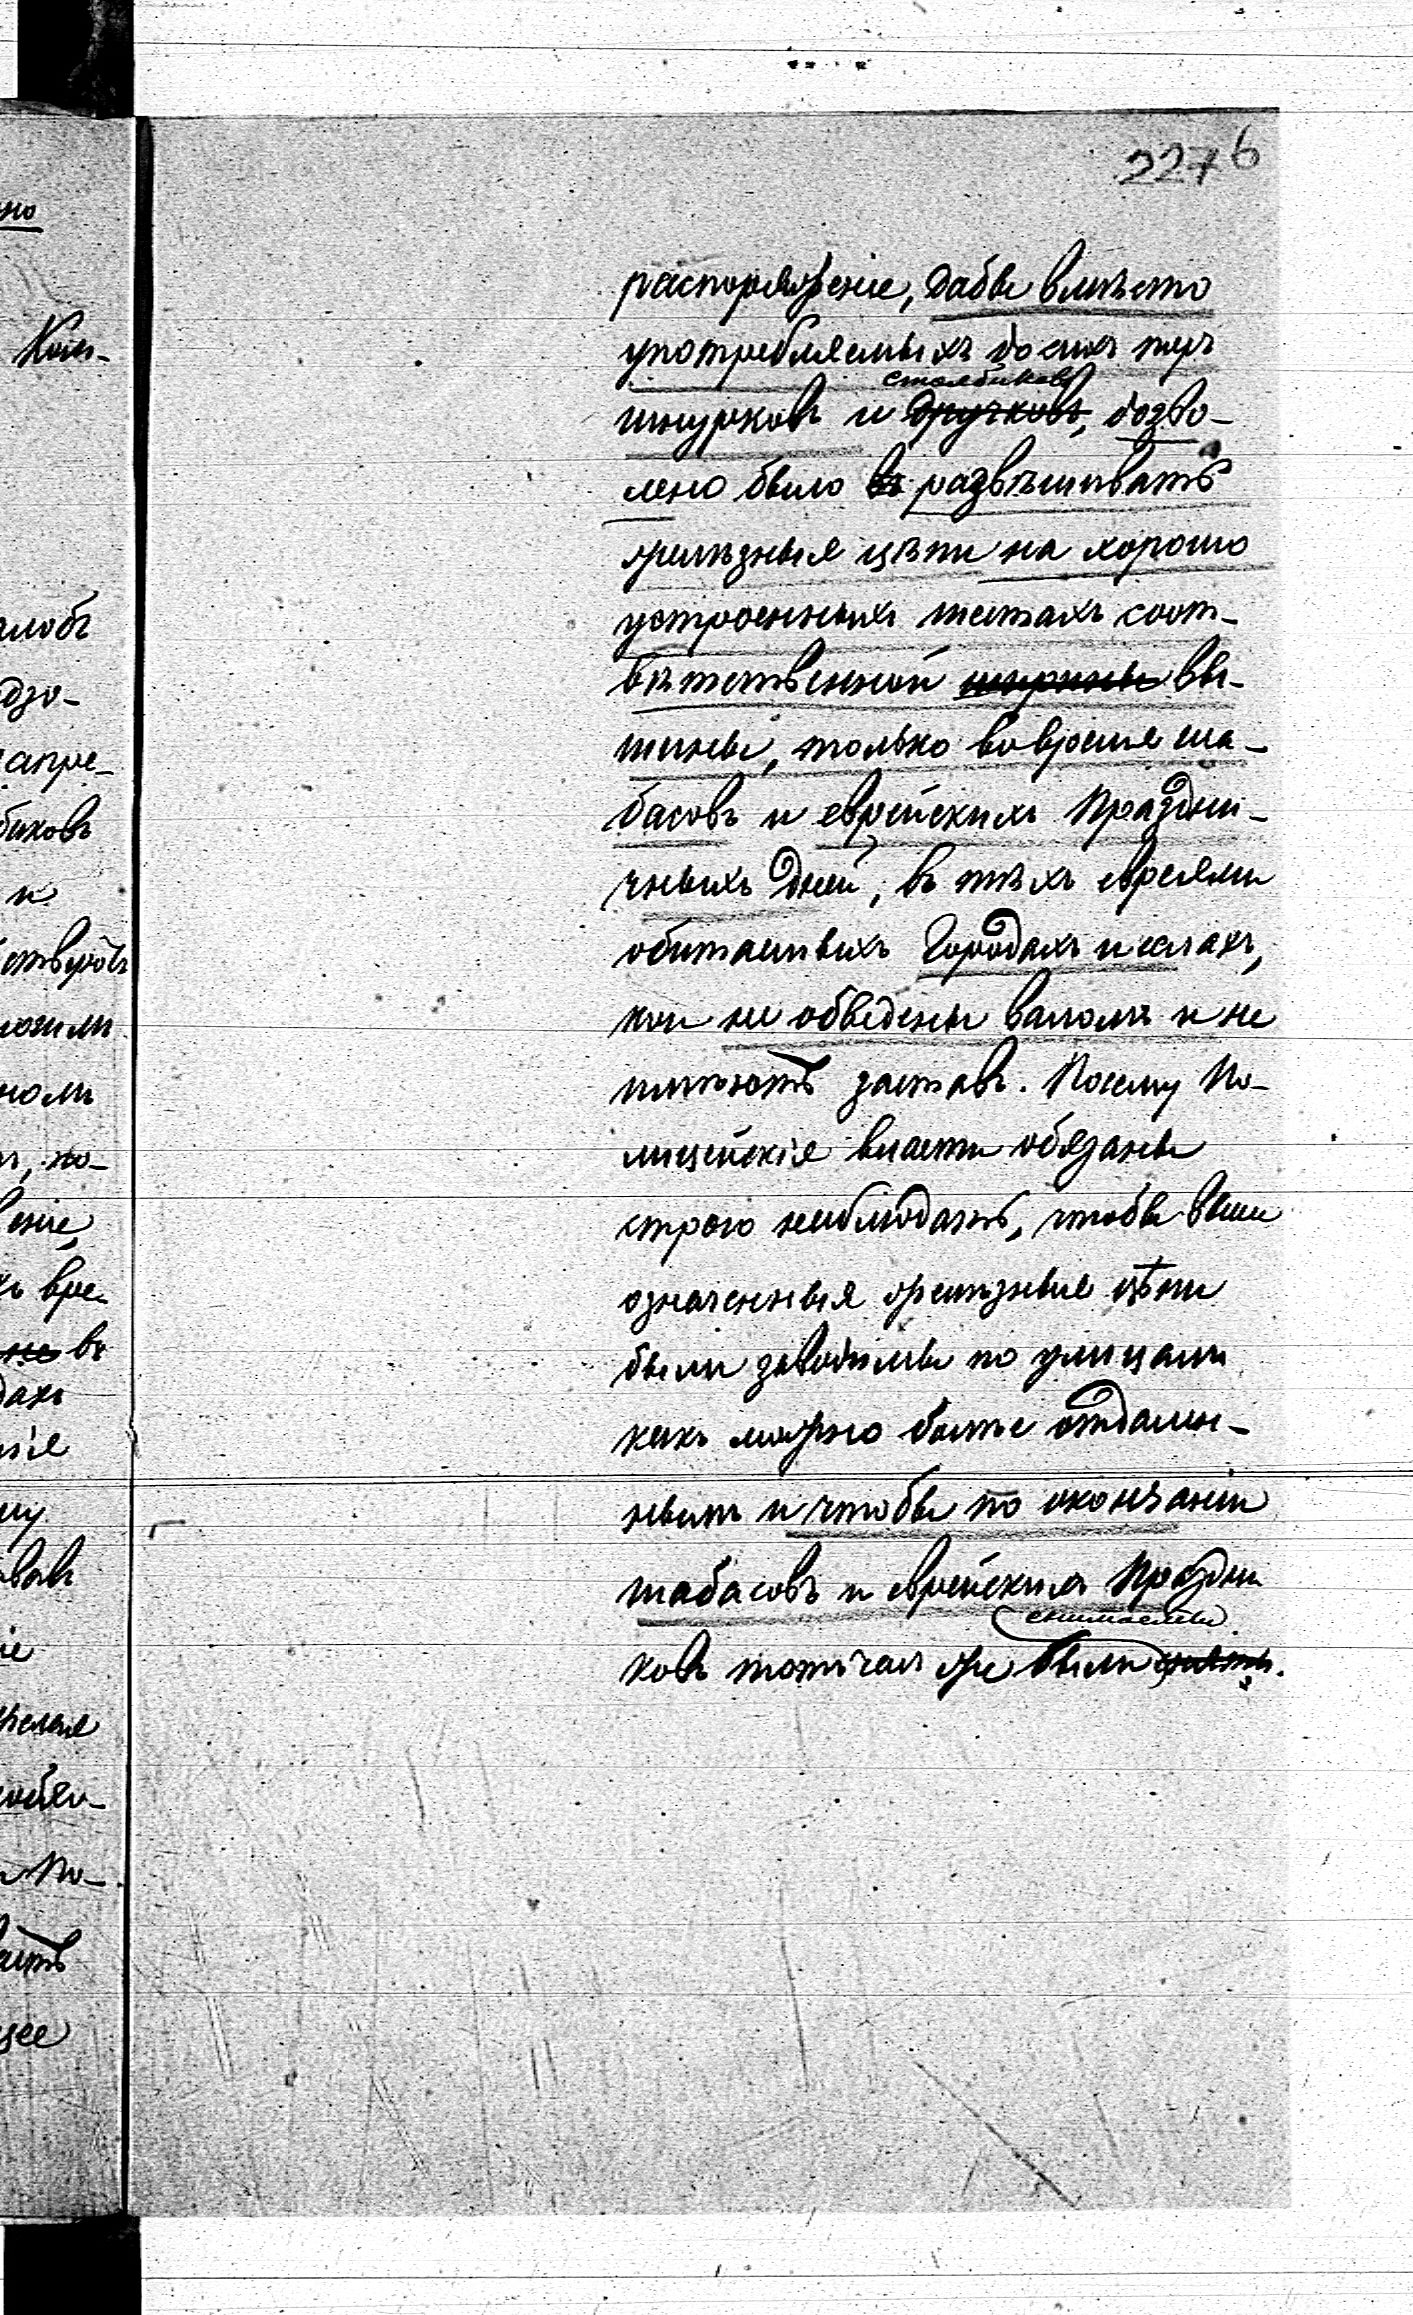 227 б
распоряженіе, дабы вмѣсто
употребляемыхъ до сихъ поръ
столбиковъ
шнурковъ и дручковъ, дозво-
лено было въ развѣшивать
желѣзныя цѣпи на хорошо
устроенныхъ шестахъ соот-
вѣтственной ширины вы-
шины, только во время ша-
басовъ и еврейскихъ Праздни-
чныхъ дней, въ тѣхъ евреями
обитаемыхъ Городахъ и селахъ,
кои не обведены валомъ и не
имѣютъ заставъ. Посему По-
лицейскія власти обязаны
строго наблюдать, чтобы выше
означенныя желѣзныя цѣпи
были заводимы по улицамъ
какъ можно болѣе отдален-
нымъ и чтобы по окончаніи
шабасовъ и еврейскихъ Праздни
снимаемы
ковъ тотъ часъ же были сняты.